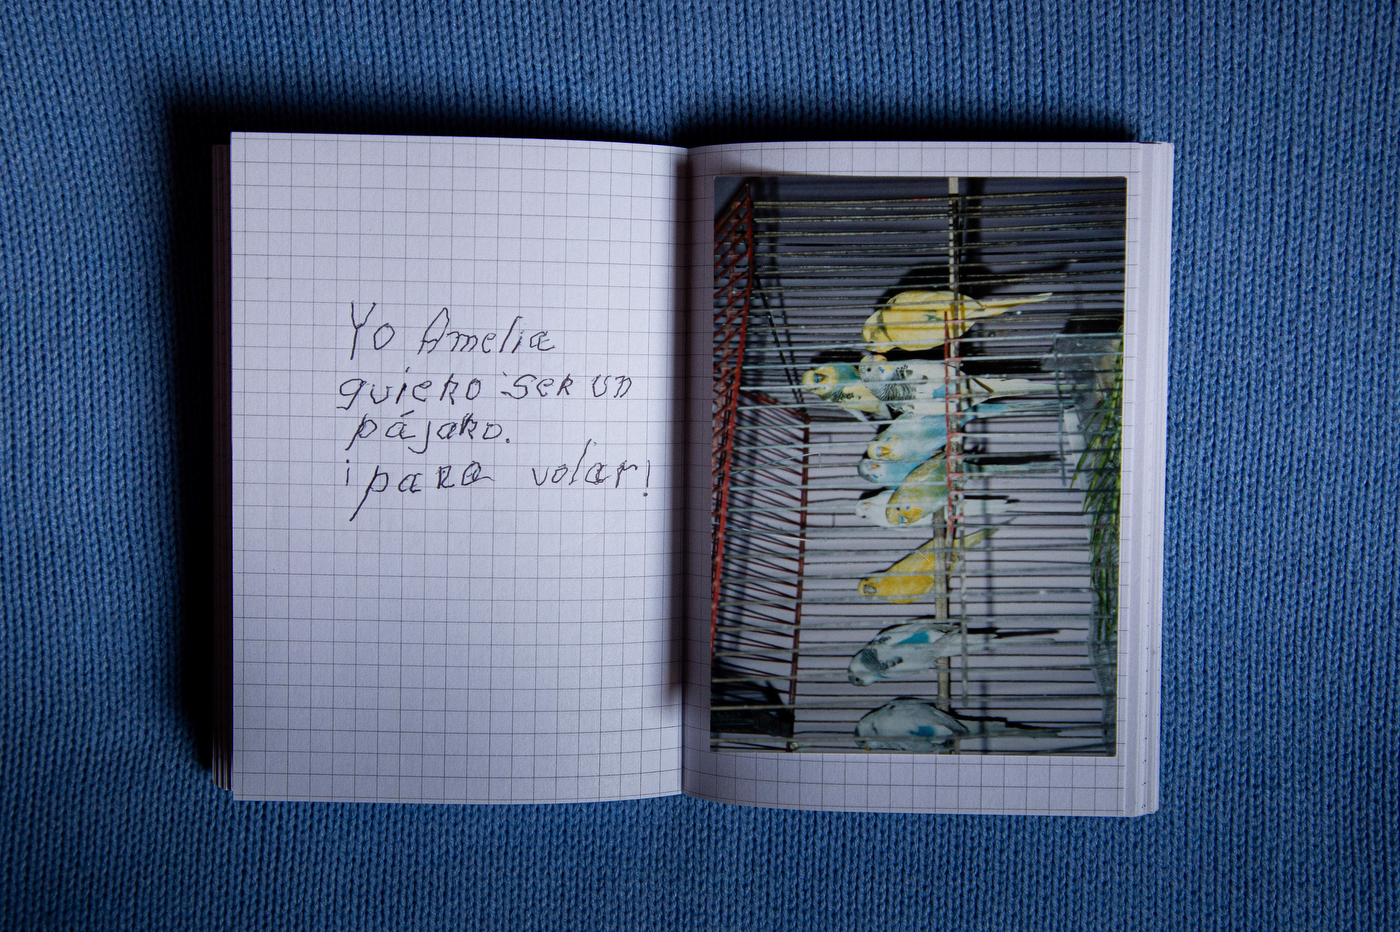 Yo Amelia
quiero ser un
pájaro.
¡para volar!